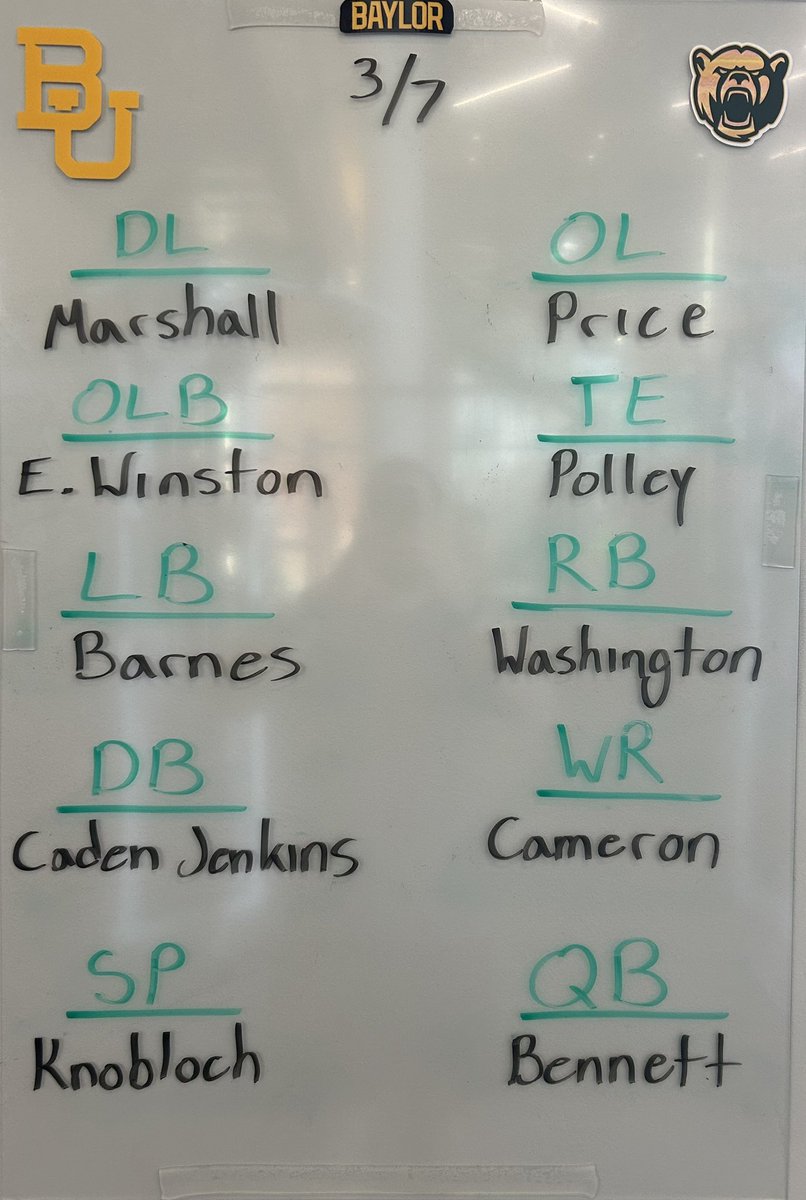 BAYLOR
BU
3/7
DL
Marshall
OLB
E. Winston
LB
Barnes
DB
Caden Jenkins
SP
Knobloch
OL
Price
TE
Polley
RB
Washington
WR
Cameron
QB
Bennett